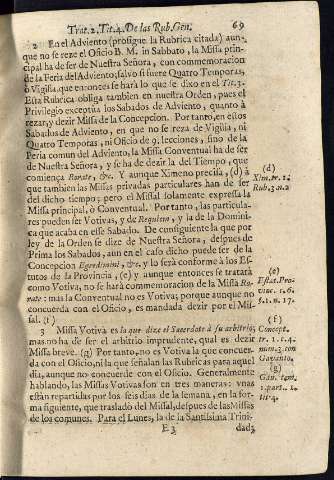 Trat. 2. Tit. 4. De las Rub. Gen. 69
2 En el Adviento (prosigue la Rubrica citada) aun-
que no se reze el Oficio B. M. in Sabbato, la Missa prin-
cipal ha de ser de Nuestra Señora, con commemoracion
de la Feria del Adviento, salvo si fuere Quatro Temporas,
ò Vigilia, que entonces se harà lo que se dixo en el Tit. 3.
Esta Rubrica obliga tambien en nuestra Orden, pues el
Privilegio exceptùa los Sabados de Adviento, quanto à
rezar, y dezir Missa de la Concepcion. Por tanto, en estos
Sabados de Adviento, en que no se reza de Vigilia, ni
Quatro Temporas, ni Oficio de 9. lecciones, sino de la
Feria comun del Adviento, la Missa Conventual ha de ser
de Nuestra Señora, y se ha de dezir la del Tiempo, que
comiença Rorate, &c. Y aunque Ximeno precisa, (d) à
que tambien las Missas privadas particulares han de ser
del dicho tiempo; pero el Missal solamente expressa la
Missa principal, ò Conventual. Portanto, las particula-
res pueden ser Votivas, y de Requiem, y la de la Domini-
ca que acaba en esse Sabado. De consiguiente la que por
ley de la Orden se dize de Nuestra Señora, despues de
Prima los Sabados, aun en el caso dicho puede ser de la
Concepcion Egredimini, &c. y lo serà conforme à los Es-
tutos de la Provincia, (e) y aunque entonces se tratarà
como Votiva, no se harà commemoracion de la Missa Ro-
rate: mas la Conventual no es Votiva; porque aunque no
concuerda con el Oficio, es mandada dezir por el Mis-
sal. (f)
3 Missa Votiva es la que dize el Sacerdote à su arbitrio;
mas no ha de ser el arbitrio imprudente, qual es dezir
Missa breve. (g) Por tanto, no es Votiva la que concuer-
da con el Oficio, ni la que señalan las Rubricas para aquel
dia, aunque no concuerde con el Oficio. Generalmente
hablando, las Missas Votivas son en tres maneras: vnas
estàn repartidas por los seis dias de la semana, en la for-
ma siguiente, que trasladò del Missal, despues de las Missas
de los comunes. Para el Lunes, la de la Santissima Trini-
E 3 dad;
(d)
Xim. tr. 1.
Rub. 3. n. 2
(e)
Estat. Pro-
vinc. c. 6.
§. 1. n. 17.
(f)
Concept.
tr. 1. c. 4.
num. 3. con
Gavanto.
(g)
Gav. tom.
1. part. 1.
tit. 4.